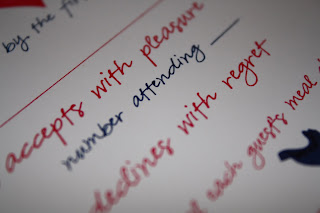 by the fir
accepts with pleasure
number attending ___
declines with regret
each guest's meal